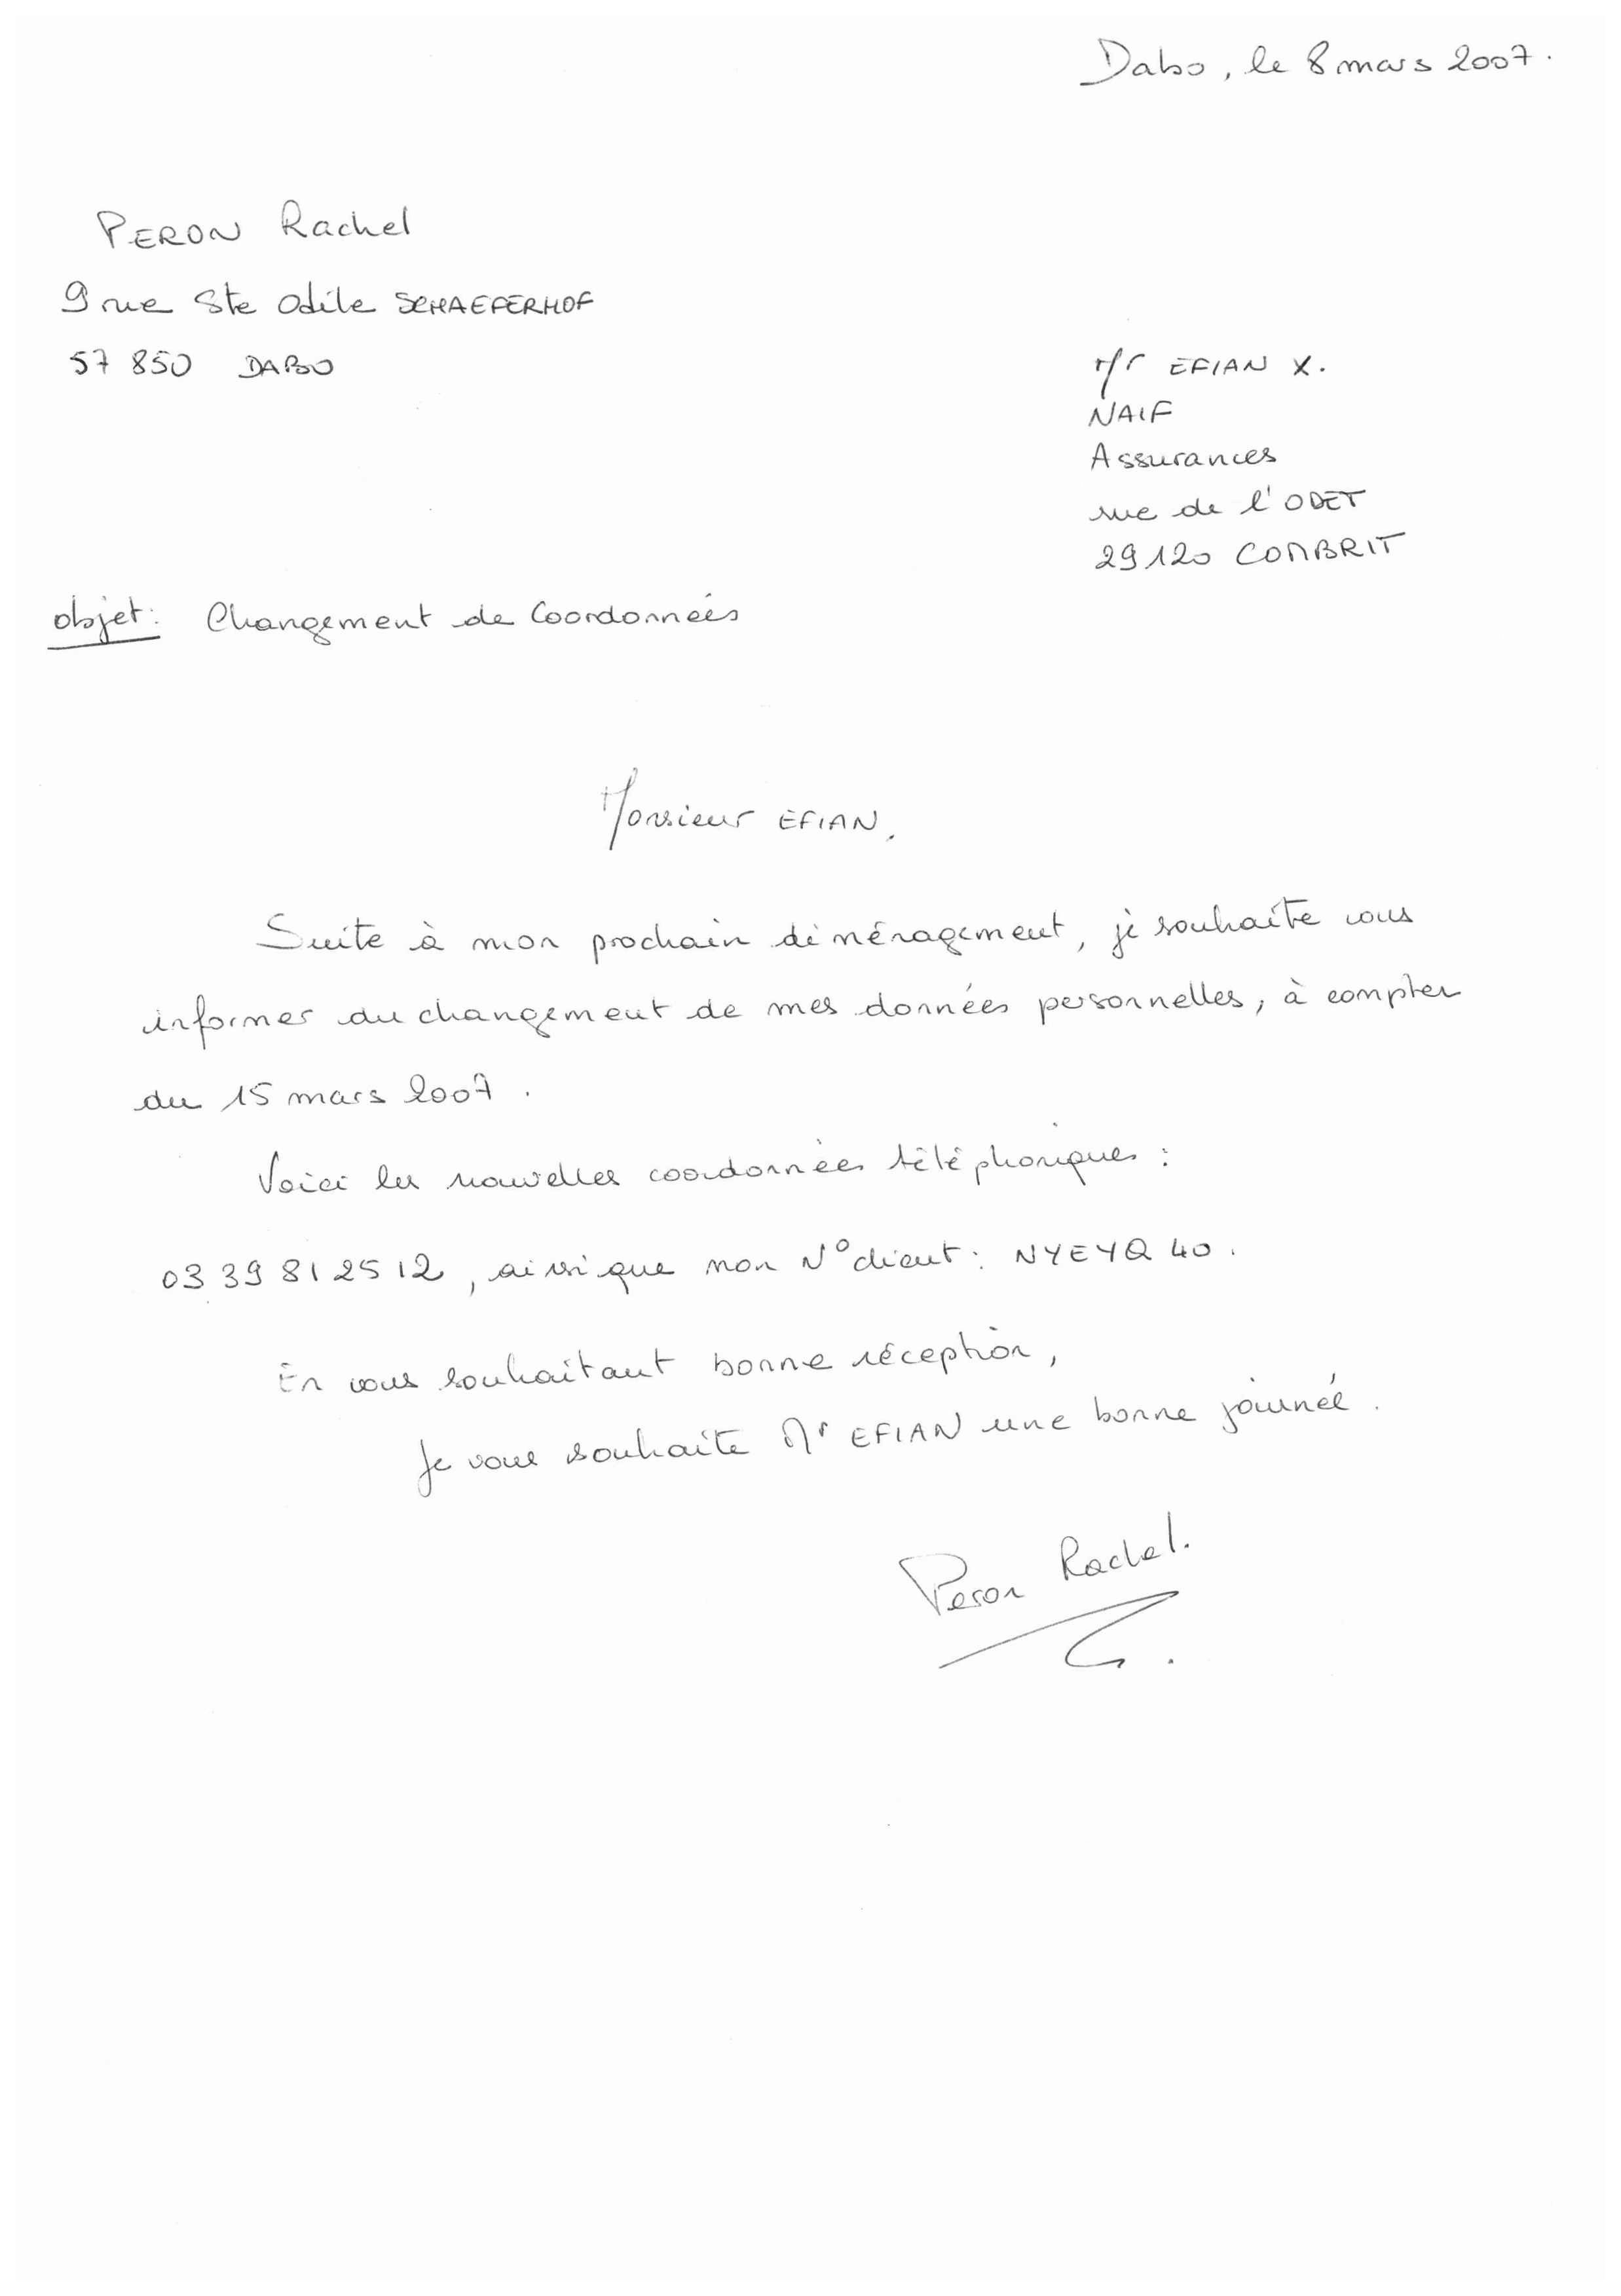 Dabo, le 8 mars 2007.
PERON Rachel
9 rue Ste Odile SCHAEFERHOF
57 850 DABO
Mr EFIAN X.
NAIF
Assurances
rue de l'ODET
29120 COMBRIT
objet: Changement de Coordonnées
Monsieur EFIAN,
Suite à mon prochain déménagement, je souhaite vous
informer du changement de mes données personnelles, à compter
du 15 mars 2007.
Voici les nouvelles coordonnées téléphoniques :
03 39 81 25 12, ainsi que mon N° client : NYEYQ 40.
En vous souhaitant bonne réception,
Je vous souhaite Mr EFIAN une bonne journée.
Peron Rachel.